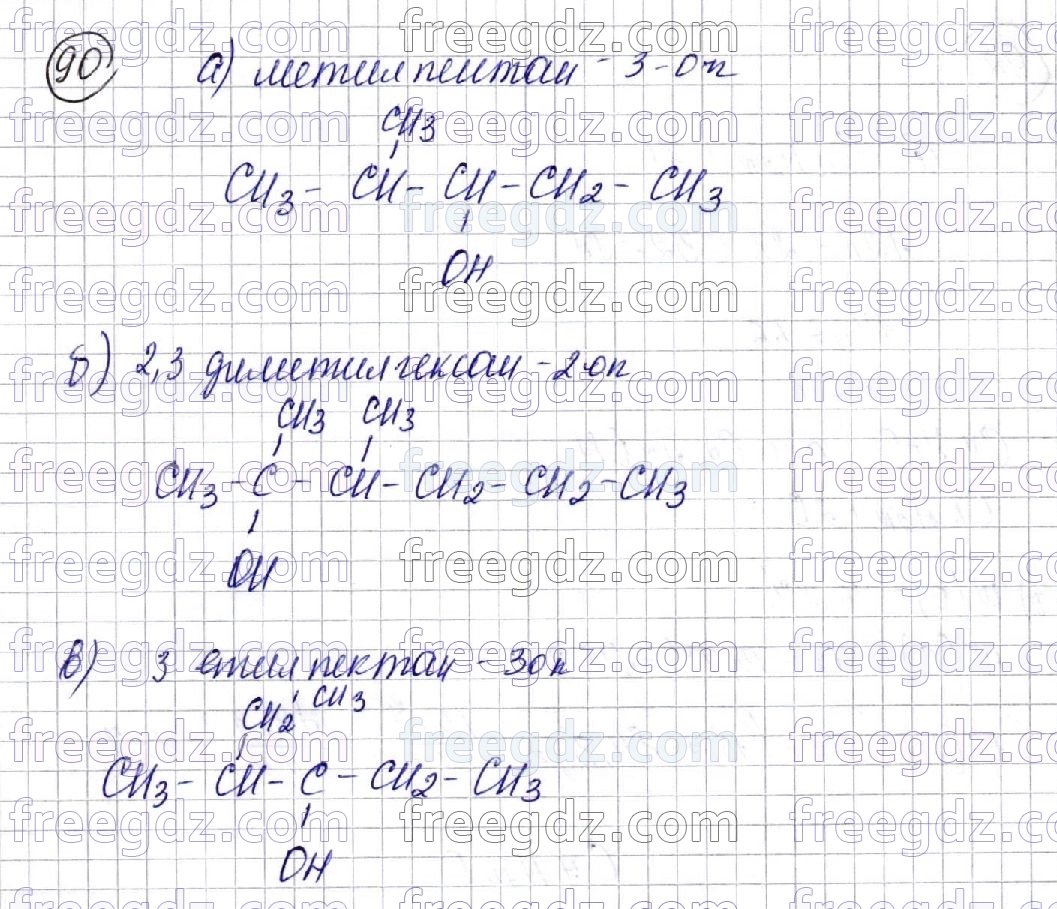 90 а) метилпентан - 3 - ол
CH3
CH3 - CH - CH - CH2 - CH3
OH
б) 2,3 диметилгексан - 2 ол
CH3 CH3
CH3 - C - CH - CH2 - CH2 - CH3
OH
в) 3 етил пектан - 3 ол
CH2 CH3
CH3 - CH - C - CH2 - CH3
OH
freegdz.com